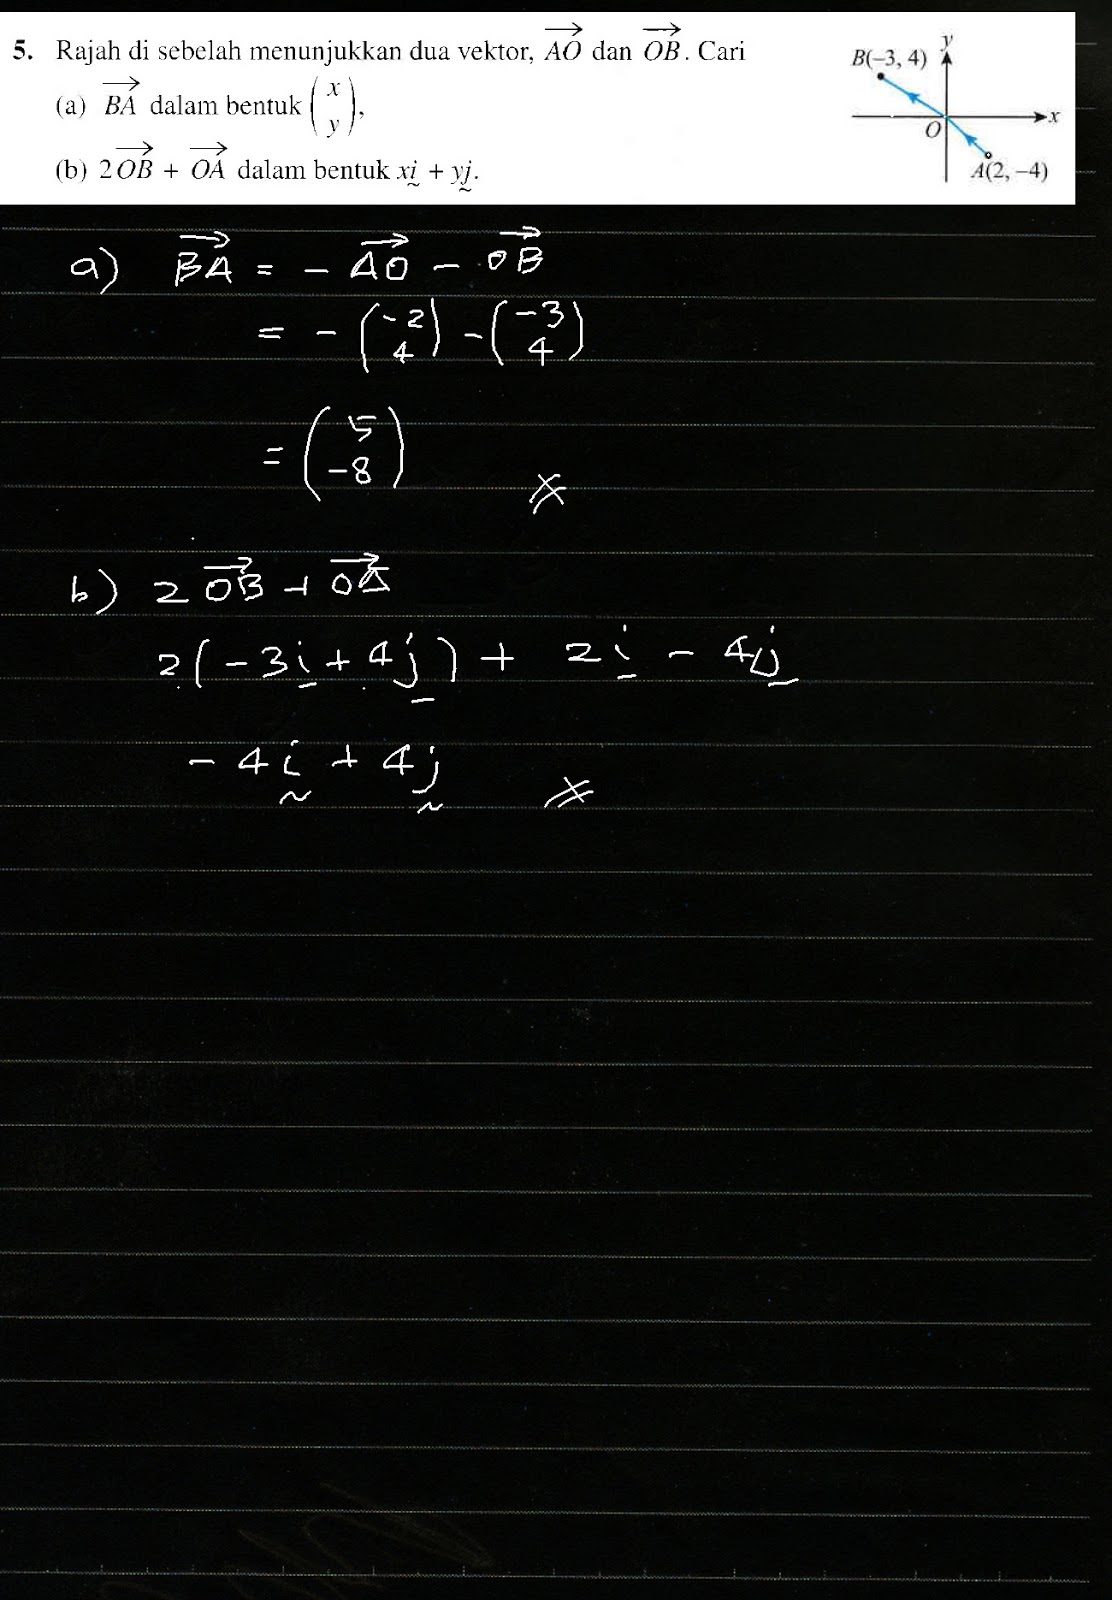 5. Rajah di sebelah menunjukkan dua vektor, $\overrightarrow{AO}$ dan $\overrightarrow{OB}$. Cari
(a) $\overrightarrow{BA}$ dalam bentuk $\begin{pmatrix} x \\ y \end{pmatrix}$,
(b) $2\overrightarrow{OB} + \overrightarrow{OA}$ dalam bentuk $x\underset{\sim}{i} + y\underset{\sim}{j}$.
y
B(–3, 4)
x
O
A(2, –4)
a) $\overrightarrow{BA} = -\overrightarrow{AO} - \overrightarrow{OB}$
$= -\begin{pmatrix} -2 \\ 4 \end{pmatrix} - \begin{pmatrix} -3 \\ 4 \end{pmatrix}$
$= \begin{pmatrix} 5 \\ -8 \end{pmatrix}$
b) $2\overrightarrow{OB} + \overrightarrow{OA}$
$2(-3\underline{i} + 4\underline{j}) + 2\underline{i} - 4\underline{j}$
$-4\underset{\sim}{i} + 4\underset{\sim}{j}$